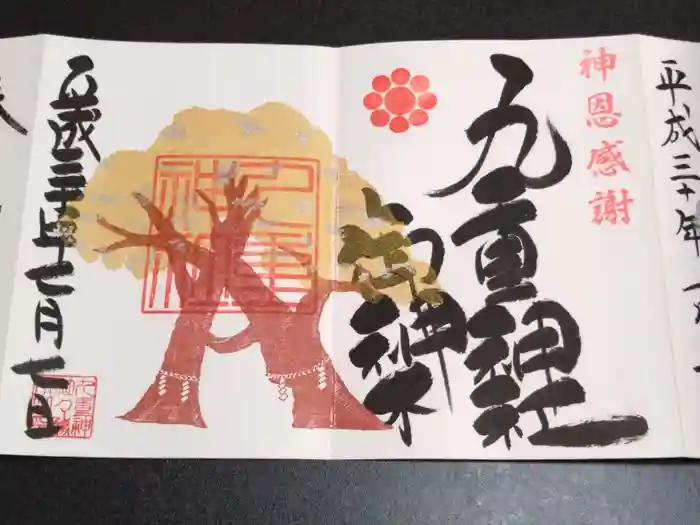 平成三十年一
神恩感謝
九重神社
御神木
九重神社
平成三十年七月七日